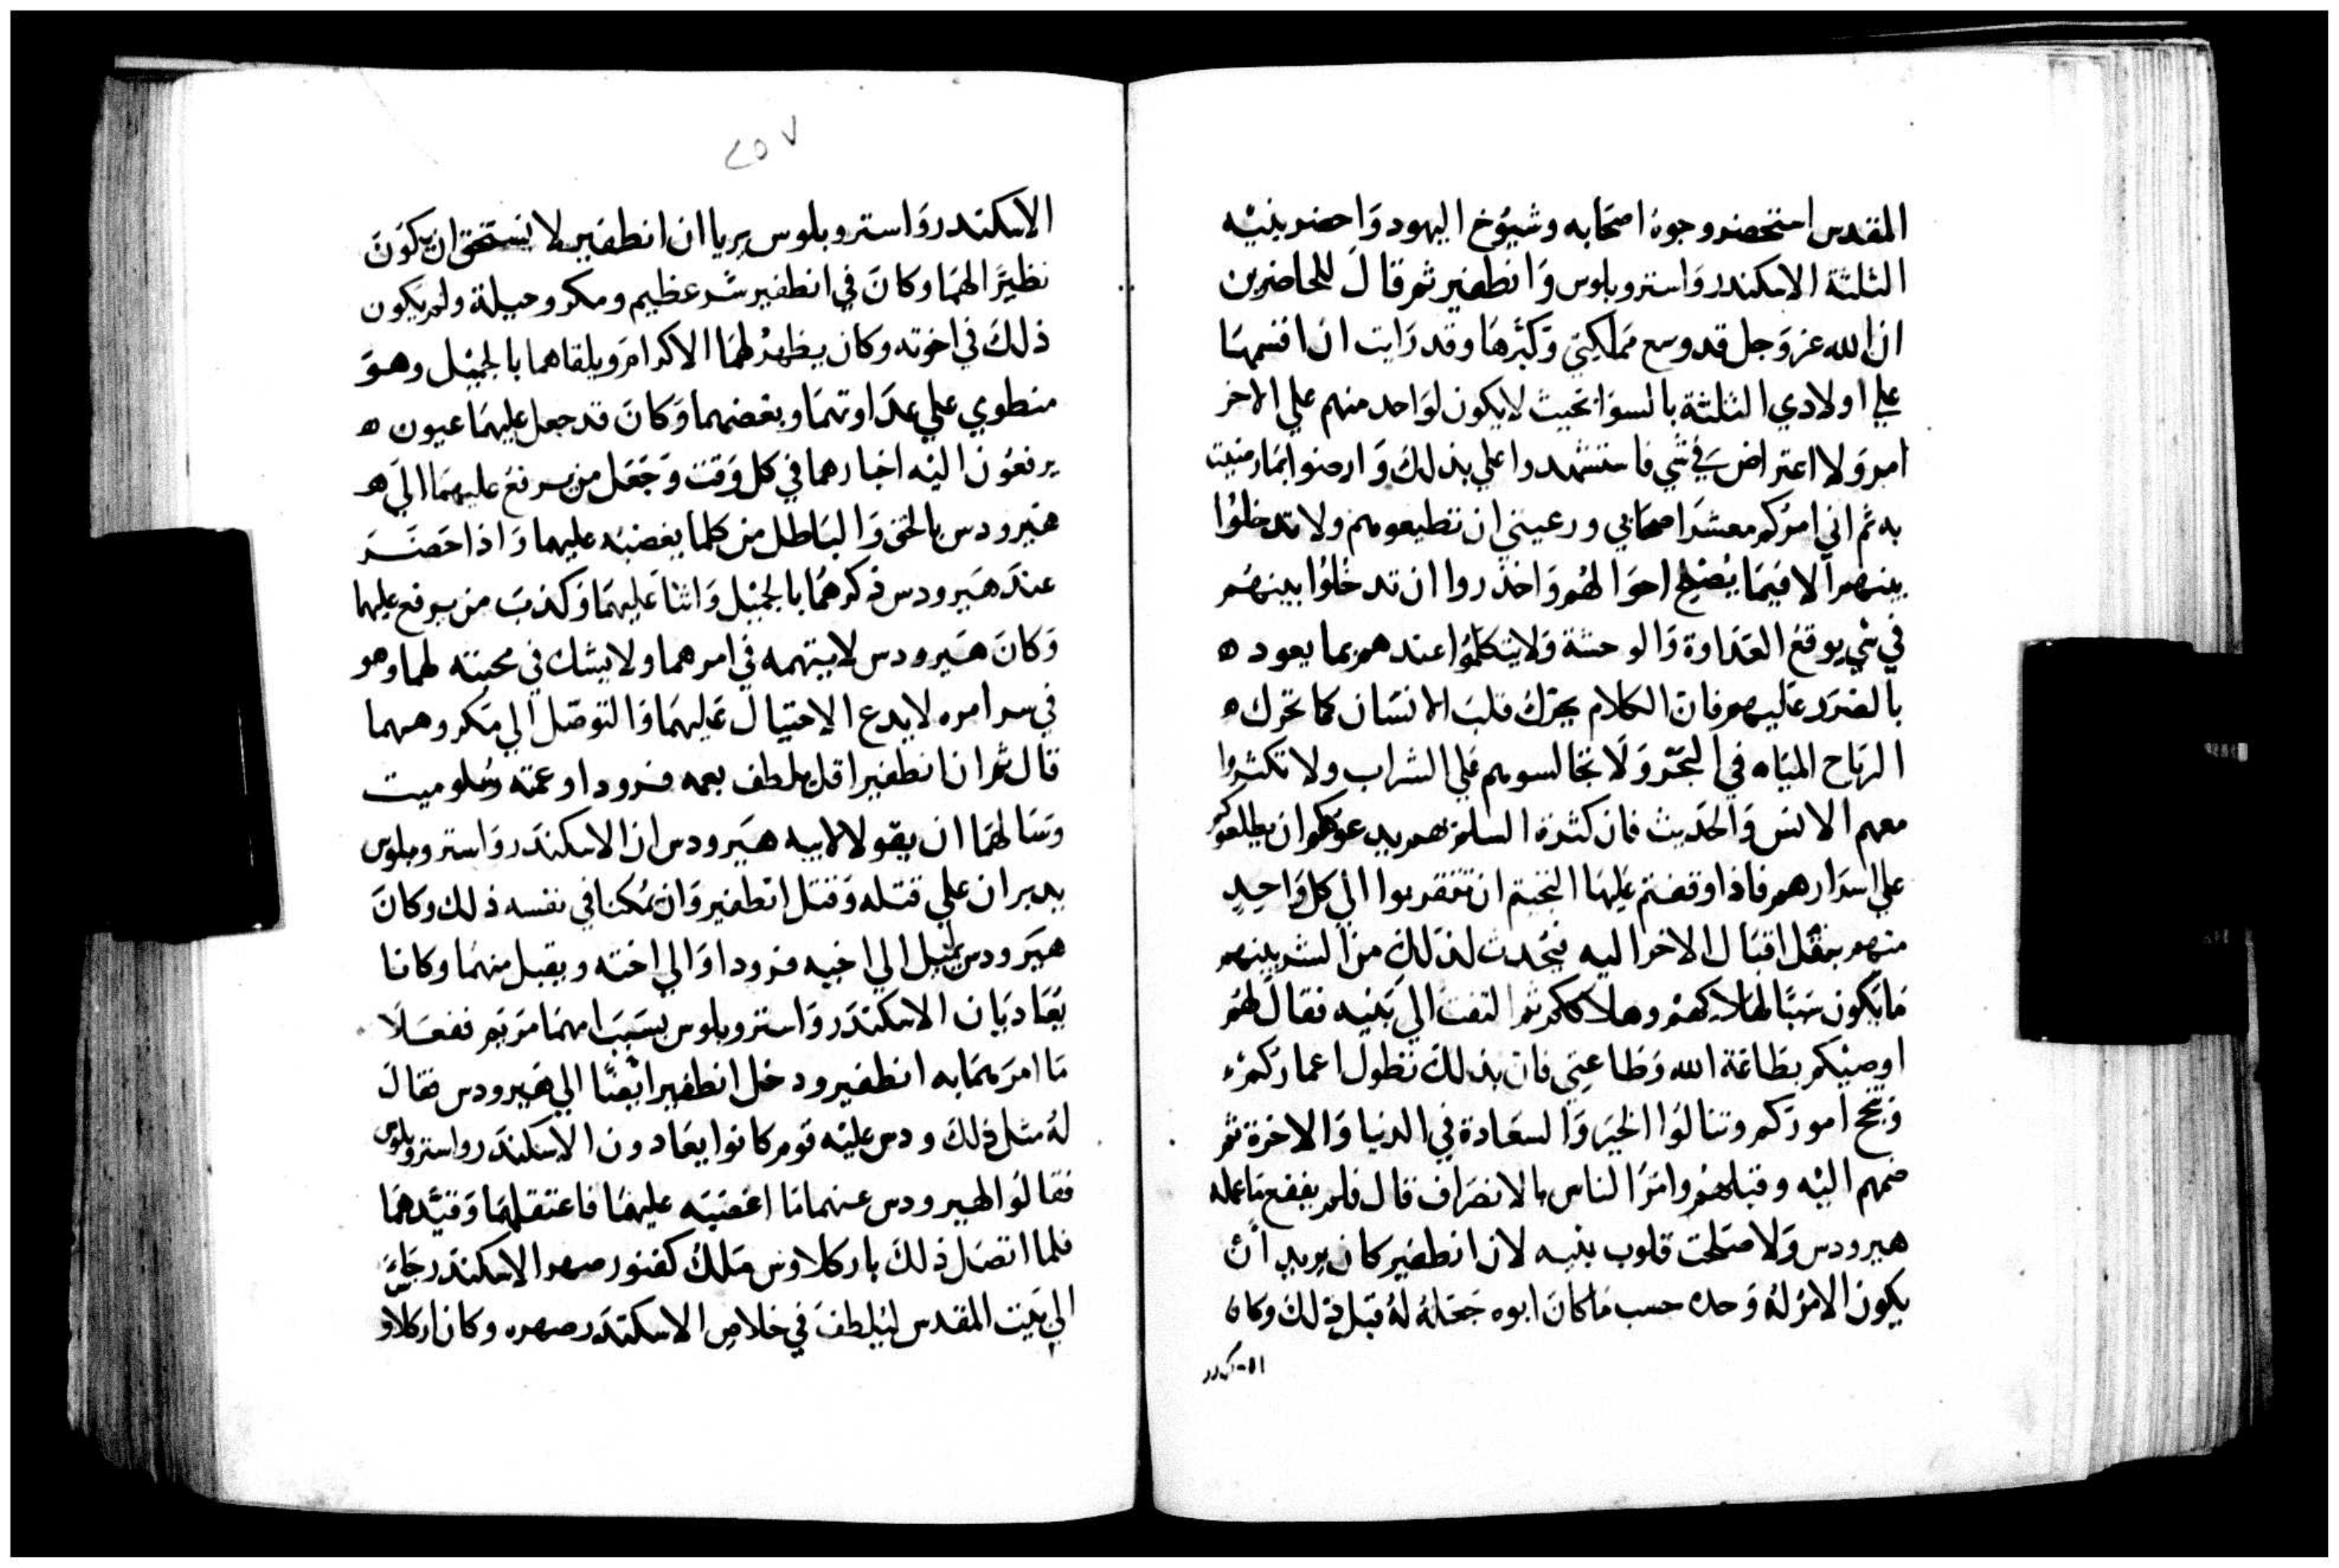 المقدس استحضر وجوه اصحابه وشيوخ اليهود واحضر بنيه
الثلثة الاسكندر واستروبلوس وانطفير ثم قال للحاضرين
ان الله عز وجل قد وسع مملكتي وكثرها وقد رايت ان اقسمها
علي اولادي الثلثة بالسوا بحيث لا يكون لواحد منهم علي الاخر
امر ولا اعتراض في شي فاستشهدوا علي بذلك وارضوا بما رضيت
به ثم اني امركم معشر اصحابي ورعيتي ان تطيعوهم ولا تدخلوا
بينهم الا فيما يصلح احوالهم واحذروا ان تدخلوا بينهم
في شي يوقع العداوة والوحشة ولا يتكلموا عندهم بما يعود ه
بالضرر عليهم فان الكلام يحرك قلب الانسان كما تحرك ه
الرياح المياه في البحر ولا تجالسوهم علي الشراب ولا تكثروا
معهم الانس والحديث فان كثرة السلم بهم يدعوكم ان يطلعوكم
علي اسرارهم فاذا وقفتم عليها التجيتم ان تتقربوا الي كل واحد
منهم بنقل اقبال الاخر اليه فيحدث لذلك من الشر بينهم
ما يكون سببا لهلاكهم وهلاككم ثم التفت الي بنيه فقال لهم
اوصيكم بطاعة الله وطاعتي فان بذلك تطول اعماركم
وتنجح اموركم وتنالوا الخير والسعادة في الدنيا والاخرة ثم
ضمهم اليه وقبلهم وامر الناس بالانصراف قال فلم ينفع ما عمله
هيرودس ولا صلحت قلوب بنيه لان انطفير كان يريد ان
يكون الامر له وحده حسب ما كان ابوه جعله له قبل ذلك وكان
الاسكندر
٢٥٧
الاسكندر واستروبلوس يريا ان انطفير لا يستحق ان يكون
نظيرا لهما وكان في انطفير شر عظيم ومكر وحيلة ولم يكون
ذلك في اخوته وكان يظهر لهما الاكرام ويلقاهما بالجميل وهو
منطوي علي عداوتهما وبغضهما وكان قد جعل عليهما عيون ه
يرفعون اليه اخبارهما في كل وقت وجعل من يرفع عليهما الي ه
هيرودس بالحق والباطل من كلما يغضبه عليهما واذا حضر
عند هيرودس ذكرهما بالجميل واثنا عليهما وكذب من يرفع عليهما
وكان هيرودس لا يتهمه في امرهما ولا يشك في محبته لهما وهو
في سر امره لا يدع الاحتيال عليهما والتوصل الي مكروههما
قال ثم ان انطفير اقبل يلطف بعمه فرودا وعمته وسلوميت
وسالهما ان يقولا لابيه هيرودس ان الاسكندر واستروبلوس
يدبران علي قتله وقتل انطفير وان يمكنا في نفسه ذلك وكان
هيرودس يميل الي اخيه فرودا والي اخته ويقبل منهما وكانا
يعاديان الاسكندر واستروبلوس بسبب امهما مريم ففعلا
ما امرهما به انطفير ودخل انطفير ايضا الي هيرودس فقال
له مثل ذلك ودس عليه قوم كانوا يعادون الاسكندر واستروبلوس
فقالوا لهيرودس عنهما ما اغضبه عليهما فاعتقلهما وقيدهما
فلما اتصل ذلك باركلاوس ملك كفتور صهر الاسكندر جاء
الي بيت المقدس ليلطف في خلاص الاسكندر صهره وكان اركلاوس